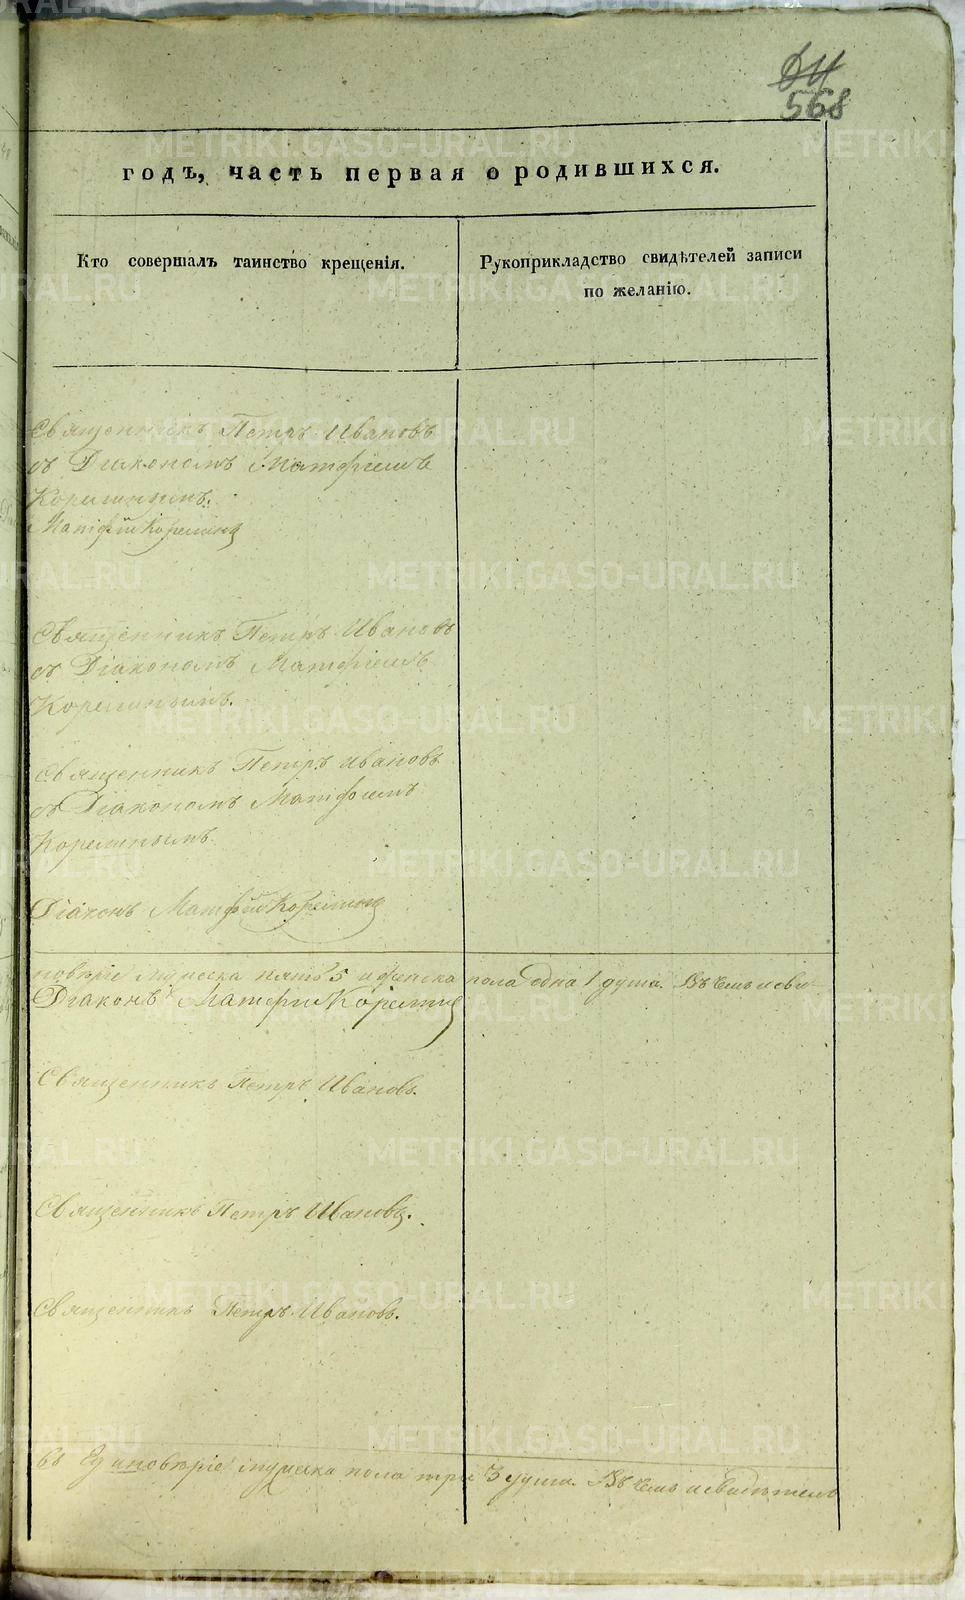 568
годъ, часть первая о родившихся.
Кто совершалъ таинство крещенія.
Рукоприкладство свидѣтелей записи
по желанію.
Священникъ Петръ Ивановъ
съ Діакономъ Матфіемъ
Корелинымъ.
Матфій Корелинъ
Священникъ Петръ Ивановъ
съ Діакономъ Матфіемъ
Корелинымъ.
Священникъ Петръ Ивановъ
съ Діакономъ Матфіемъ
Корелинымъ.
Діаконъ Матфій Корелинъ
новѣріе мужеска пять 5 и женска пола одна 1 душа. Въ чемъ и сви-
Діаконъ Матфій Корелинъ
Священникъ Петръ Ивановъ.
Священникъ Петръ Ивановъ.
Священникъ Петръ Ивановъ.
въ Единовѣріе мужеска пола три 3 душа. Въ чемъ и свидѣтель
METRIKI.GASO-URAL.RU